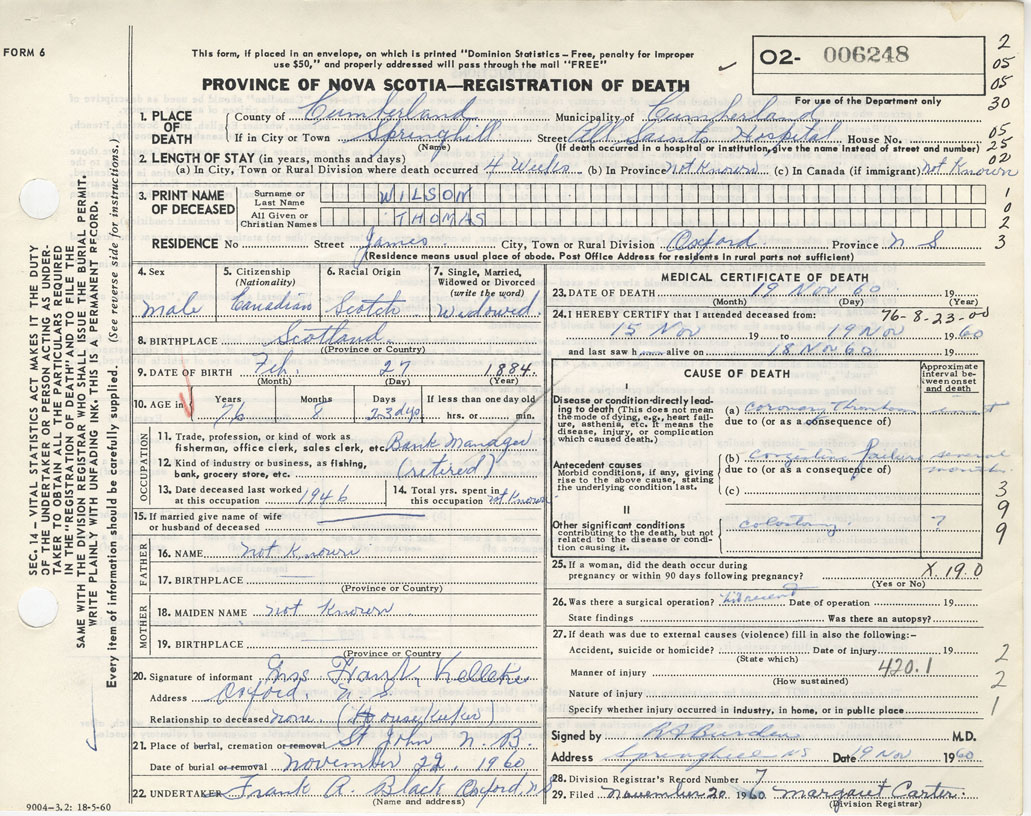 FORM 6
This form, if placed in an envelope, on which is printed "Dominion Statistics—Free, penalty for improper
use $50," and properly addressed will pass through the mail "FREE"
PROVINCE OF NOVA SCOTIA—REGISTRATION OF DEATH
O2- 006248
For use of the Department only
2
05
05
30
05
25
02
1
0
2
3
1. PLACE OF DEATH
County of Cumberland Municipality of Cumberland
If in City or Town Springhill Street All Saints Hospital House No.
(Name) (If death occurred in a hospital or institution, give the name instead of street and number)
2. LENGTH OF STAY (in years, months and days)
(a) In City, Town or Rural Division where death occurred 4 Weeks (b) In Province not Known (c) In Canada (if immigrant) not Known
3. PRINT NAME OF DECEASED
Surname or Last Name WILSON
All Given or Christian Names THOMAS
RESIDENCE No Street James City, Town or Rural Division Oxford Province N S
(Residence means usual place of abode. Post Office Address for residents in rural parts not sufficient)
4. Sex Male
5. Citizenship (Nationality) Canadian
6. Racial Origin Scotch
7. Single, Married, Widowed or Divorced (write the word) Widowed
8. BIRTHPLACE Scotland
(Province or Country)
9. DATE OF BIRTH Feb. 27 1884
(Month) (Day) (Year)
10. AGE in Years 76 Months 8 Days 23 days If less than one day old hrs. or min.
OCCUPATION
11. Trade, profession, or kind of work as
fisherman, office clerk, sales clerk, etc. Bank Manager
12. Kind of industry or business, as fishing,
bank, grocery store, etc. (retired)
13. Date deceased last worked at this occupation 1946
14. Total yrs. spent in this occupation not Known
15. If married give name of wife
or husband of deceased
FATHER
16. NAME not Known
17. BIRTHPLACE
(Province or Country)
MOTHER
18. MAIDEN NAME not Known
19. BIRTHPLACE
(Province or Country
20. Signature of informant Mrs Frank
Address Oxford. N. S.
Relationship to deceased none. (Housekeeper)
21. Place of burial, cremation or removal St John N. B.
Date of burial or removal November 22. 1960
22. UNDERTAKER Frank A. Black Oxford, N S
(Name and address)
9004—3.2: 18-5-60
MEDICAL CERTIFICATE OF DEATH
23. DATE OF DEATH 19 Nov 60 19
(Month) (Day) (Year)
24. I HEREBY CERTIFY that I attended deceased from: 76-8-23-00
15 Nov 19 to 19 Nov 1960
and last saw h alive on 18 Nov 60 19
CAUSE OF DEATH
Approximate interval between onset and death
I
Disease or condition directly leading to death (This does not mean the mode of dying, e.g., heart failure, asthenia, etc. It means the disease, injury, or complication which caused death.)
(a) coronary thrombosis
due to (or as a consequence of)
Antecedent causes
Morbid conditions, if any, giving rise to the above cause, stating the underlying condition last.
(b) congestive failure several months
due to (or as a consequence of)
(c)
II
Other significant conditions contributing to the death, but not related to the disease or condition causing it.
colostomy ?
3
9
9
25. If a woman, did the death occur during
pregnancy or within 90 days following pregnancy? X. 19.0
(Yes or No)
26. Was there a surgical operation? not recent Date of operation 19
State findings Was there an autopsy?
27. If death was due to external causes (violence) fill in also the following:—
Accident, suicide or homicide? Date of injury 19
(State which)
Manner of injury 420.1
(How sustained)
Nature of injury
Specify whether injury occurred in industry, in home, or in public place
2
2
1
Signed by M.D.
Address Springhill NS Date 19 Nov 1960
28. Division Registrar's Record Number 7
29. Filed November 20 1960 Margaret Carter.
(Division Registrar)
SEC. 14 – VITAL STATISTICS ACT MAKES IT THE DUTY
OF THE UNDERTAKER OR PERSON ACTING AS UNDER-
TAKER TO OBTAIN ALL THE PARTICULARS REQUIRED
IN THE "REGISTRATION OF DEATH" AND FILE THE
SAME WITH THE DIVISION REGISTRAR WHO SHALL ISSUE THE BURIAL PERMIT.
WRITE PLAINLY WITH UNFADING INK. THIS IS A PERMANENT RECORD.
Every item of information should be carefully supplied. (See reverse side for instructions.)